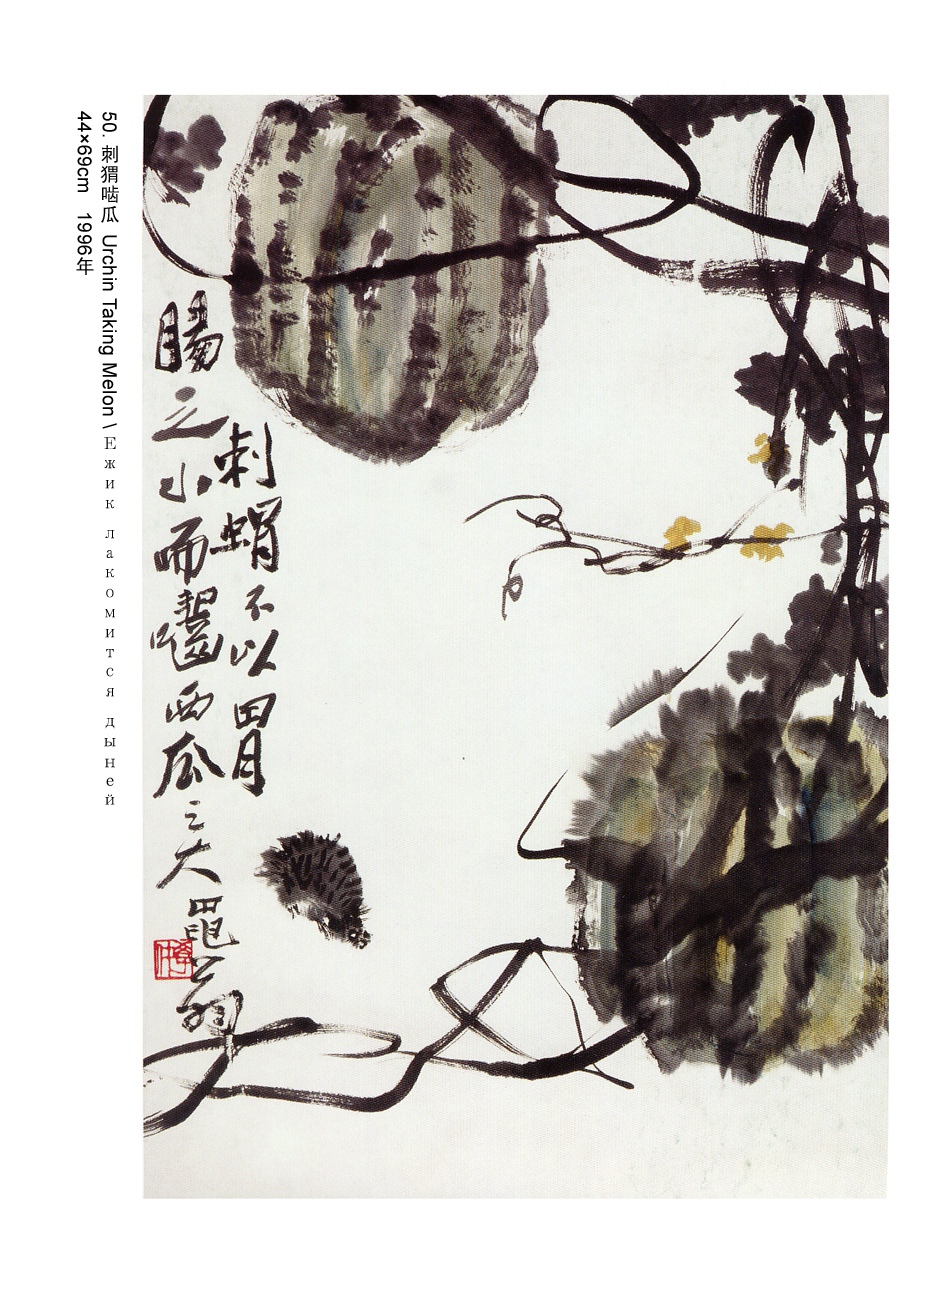 50. 刺猬啮瓜 Urchin Taking Melon \ Ежик лакомится дыней
44×69cm 1996年
刺蝟不以胃
腸之小而齧西瓜之大
翁